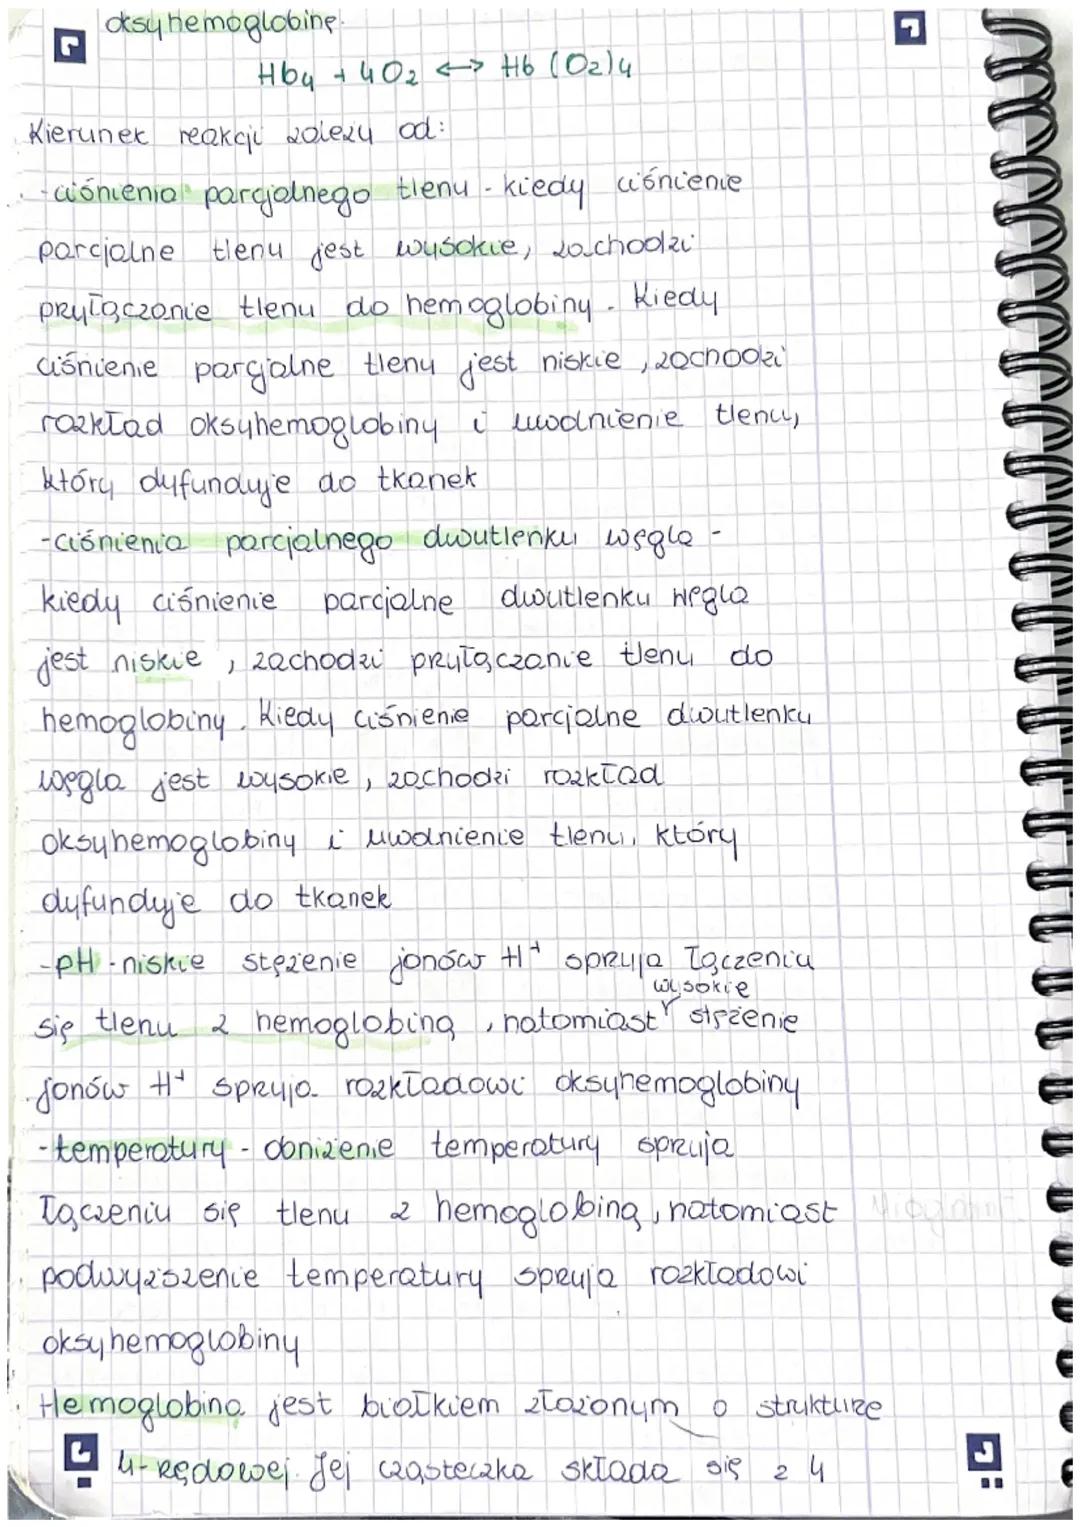 oksyhemoglobinę.
Hb4 + 4O2 ⟷ Hb (O2)4
Kierunek reakcji zależy od:
-ciśnienia parcjalnego tlenu - kiedy ciśnienie
parcjalne tlenu jest wysokie, zachodzi
przyłączanie tlenu do hemoglobiny. Kiedy
ciśnienie parcjalne tlenu jest niskie, zachodzi
rozkład oksyhemoglobiny i uwolnienie tlenu,
który dyfunduje do tkanek
-ciśnienia parcjalnego dwutlenku węgla -
kiedy ciśnienie parcjalne dwutlenku węgla
jest niskie, zachodzi przyłączanie tlenu do
hemoglobiny. Kiedy ciśnienie parcjalne dwutlenku
węgla jest wysokie, zachodzi rozkład
oksyhemoglobiny i uwolnienie tlenu, który
dyfunduje do tkanek
-pH - niskie stężenie jonów H+ sprzyja łączeniu
wysokie
się tlenu z hemoglobiną, natomiast stężenie
jonów H+ sprzyja rozkładowi oksyhemoglobiny
-temperatury - obniżenie temperatury sprzyja
łączeniu się tlenu z hemoglobiną, natomiast
podwyższenie temperatury sprzyja rozkładowi
oksyhemoglobiny
Hemoglobina jest białkiem złożonym o strukturze
4-rzędowej. Jej cząsteczka składa się z 4